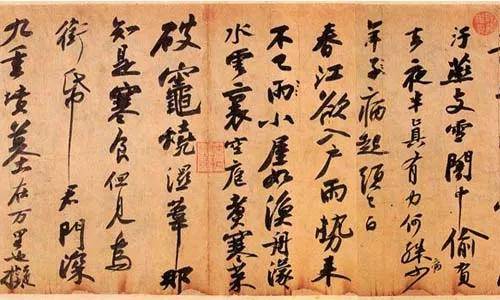 汙燕支雪闇中偷負
去夜半真有力何殊病少
年子病起頭已白
春江欲入戶雨勢來
不已雨小屋如漁舟濛
水雲裏空庖煮寒菜
破竈燒濕葦那
知是寒食但見烏
銜帋君門深
九重墳墓在万里也擬